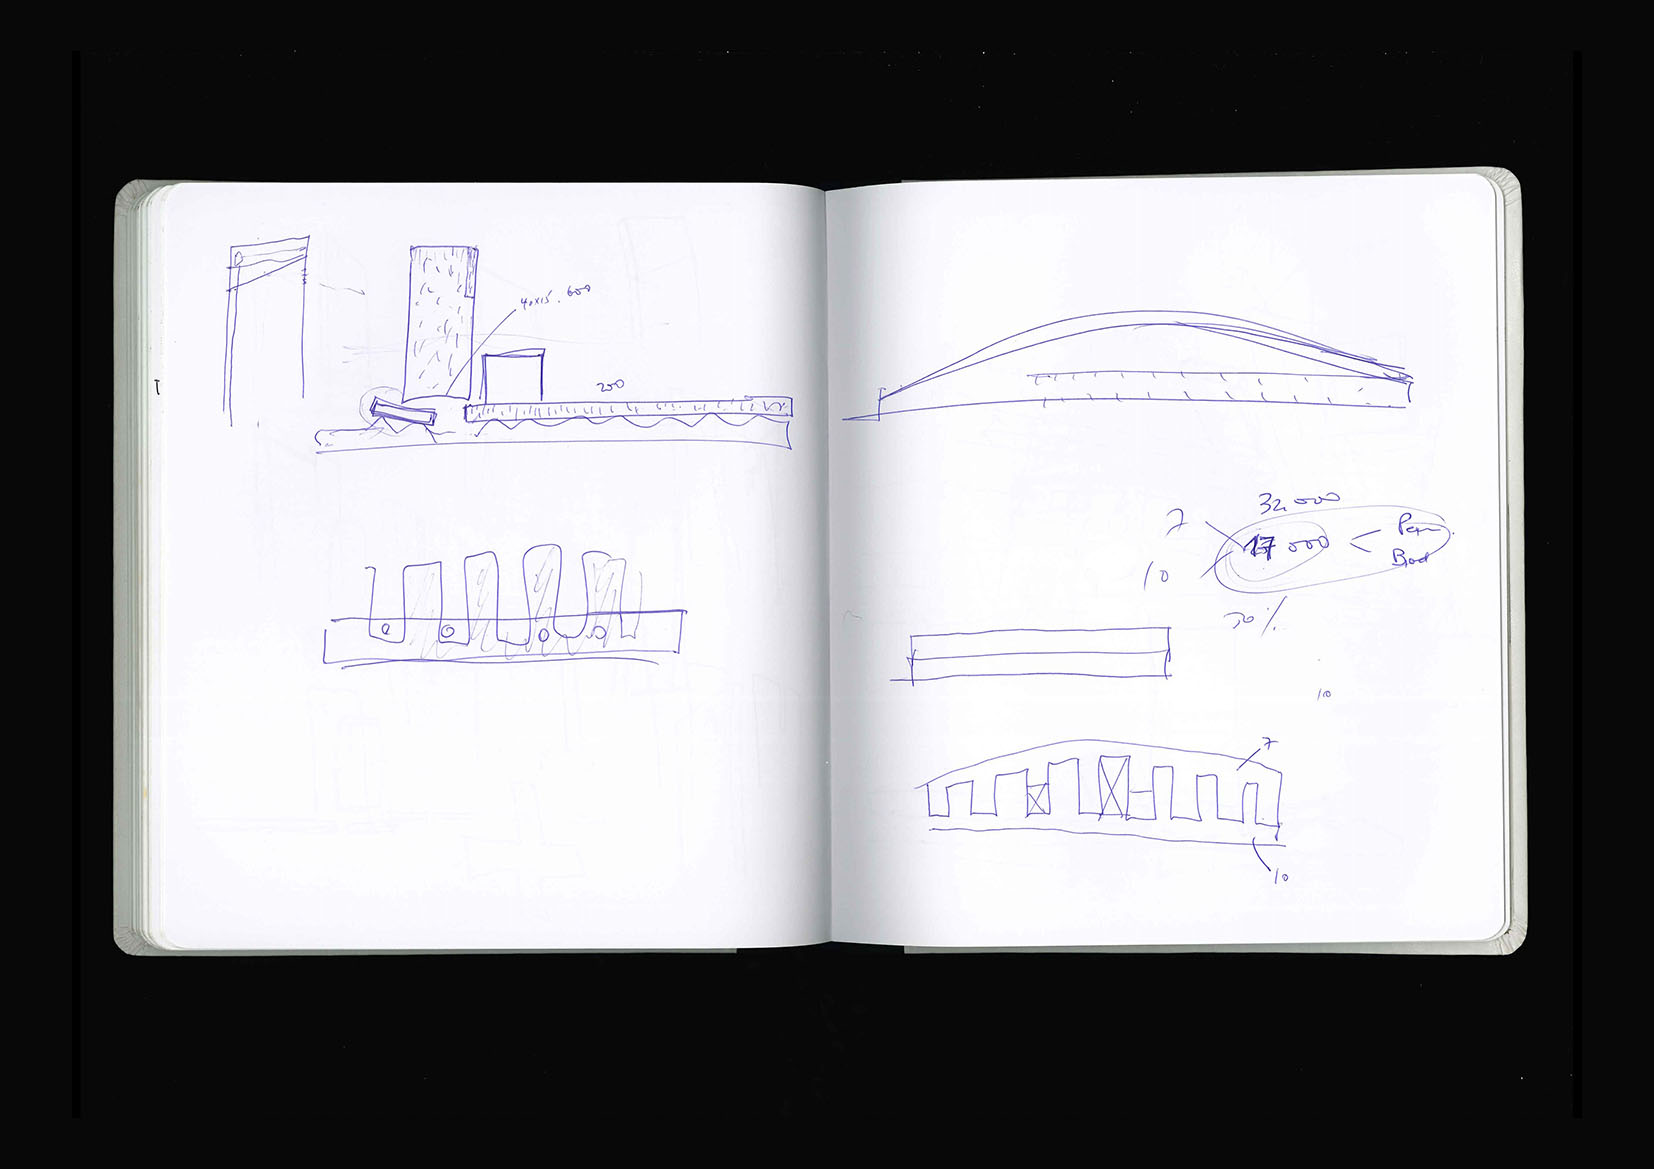 40x15 . 600
200
32 000
7
17 000
10
30 %
10
7
10